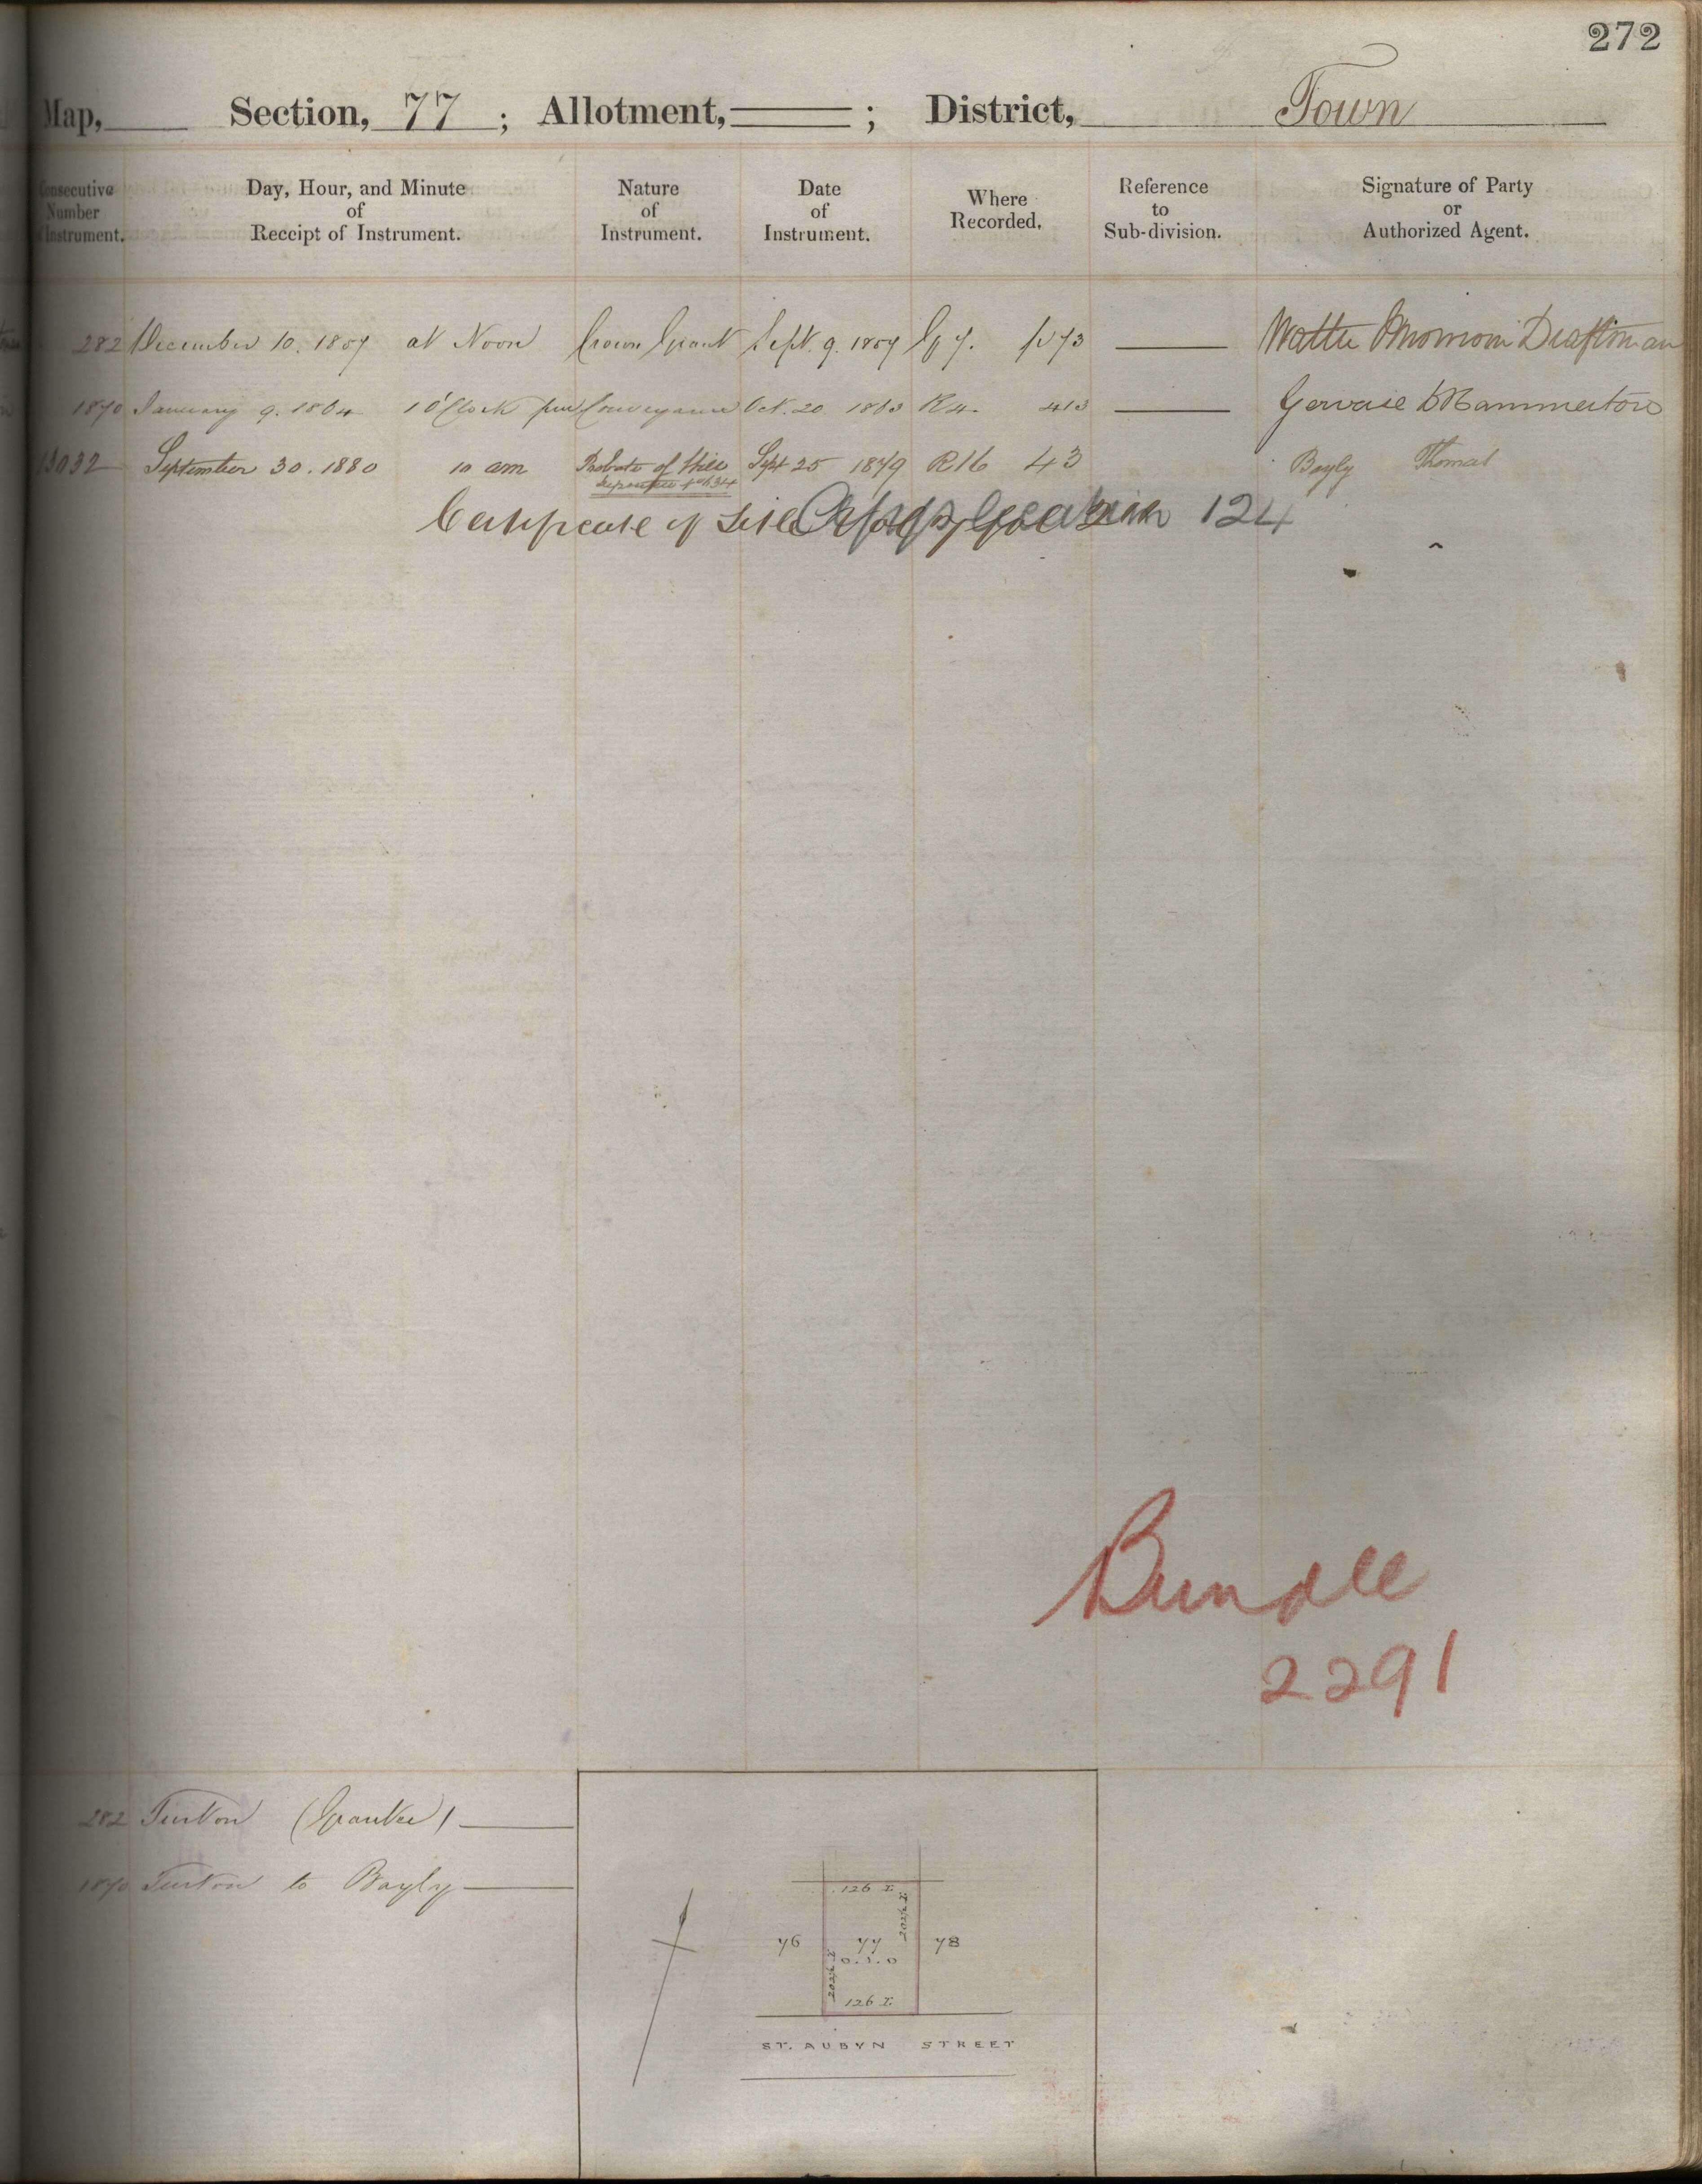 272
Map, Section, 77 ; Allotment, ; District, Town
Consecutive Number Instrument.
Day, Hour, and Minute of Receipt of Instrument.
Nature of Instrument.
Date of Instrument.
Where Recorded.
Reference to Sub-division.
Signature of Party or Authorized Agent.
282 December 10. at Noon Crown Grant Sept. 9. p 73
1870 January 9. 1864 1 O'Clock pm Conveyance Oct. 20 1863 R4. 413 Gervase
13032 September 30. 1880 10 am Probate of Will Sept 25 1879 R16 43 Bayly Thomas
Certificate of Title 124
Bundle
2291
282 Turton (Grantee)
1870 Turton to Bayly
126 L
76 77 78
0.1.0
126 L
ST. AUBYN STREET